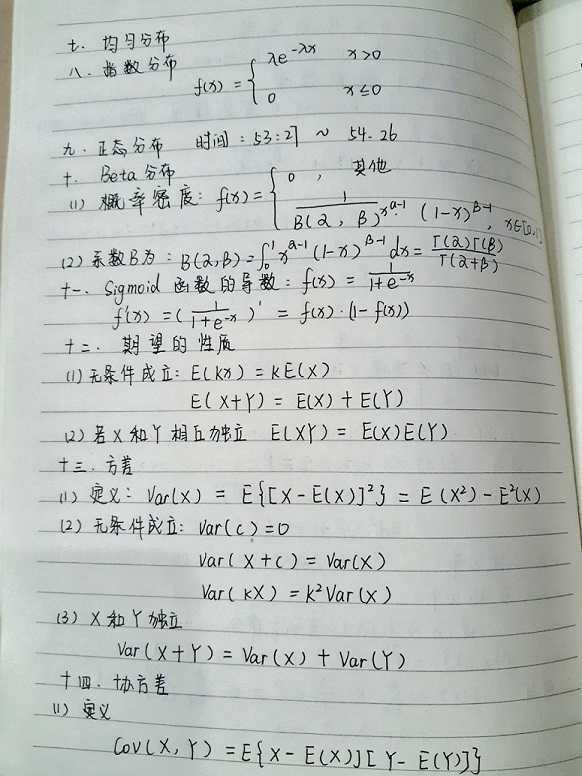 七. 均匀分布
八. 指数分布
f(x) = { λe^{-λx} x>0
0 x≤0
九. 正态分布 时间: 53:27 ~ 54.26
十. Beta 分布
(1) 概率密度: f(x) = { 0, 其他
1/B(α, β) x^{α-1} (1-x)^{β-1}, x∈[0,1]
(2) 系数B为: B(α,β) = ∫₀¹ x^{α-1} (1-x)^{β-1} dx = Γ(α)Γ(β)/Γ(α+β)
十一. Sigmoid 函数的导数: f(x) = 1/1+e^{-x}
f'(x) = (1/1+e^{-x})' = f(x)·(1-f(x))
十二. 期望的性质
(1) 无条件成立: E(kx) = kE(X)
E(X+Y) = E(X) + E(Y)
(2) 若X和Y相互独立 E(XY) = E(X)E(Y)
十三. 方差
(1) 定义: Var(X) = E{[X-E(X)]²} = E(X²) - E²(X)
(2) 无条件成立: Var(c) = 0
Var(X+c) = Var(X)
Var(kX) = k²Var(X)
(3) X和Y独立
Var(X+Y) = Var(X) + Var(Y)
十四. 协方差
(1) 定义
Cov(X, Y) = E{X-E(X)][Y-E(Y)]}